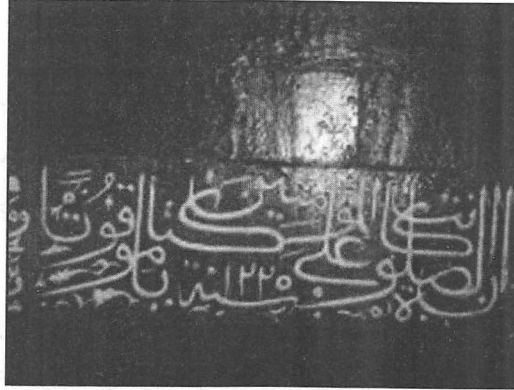 ان الصلوة كانت على المؤمنين كتابا موقوتا
سنة ١٢٢٥